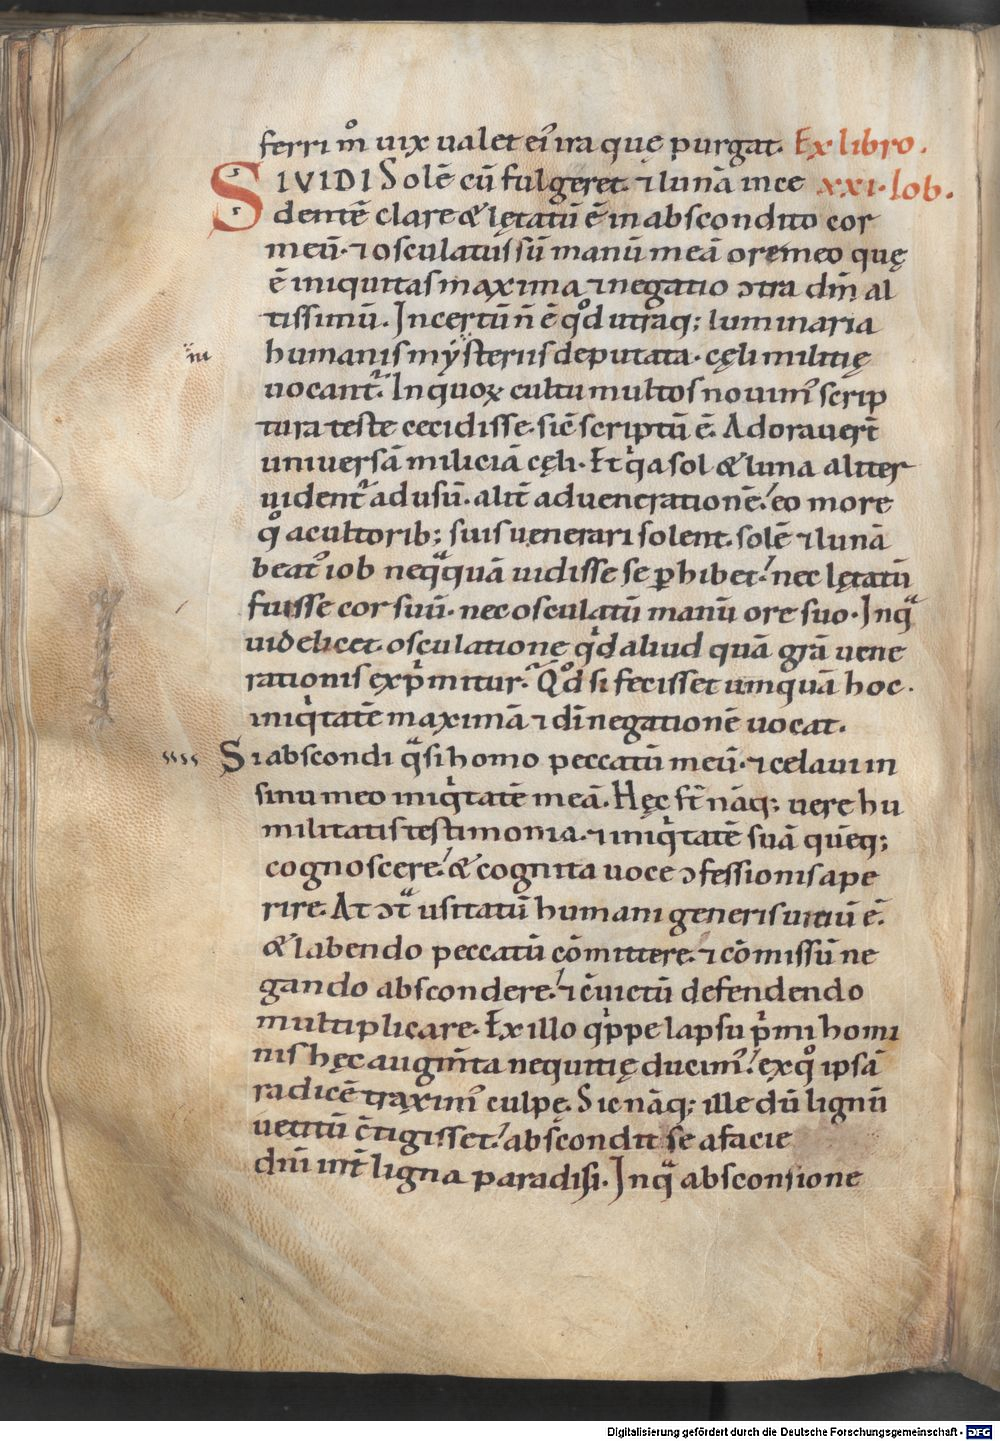 ferri m̊ uix ualet ei᾽ ira quę purgat. Ex libro.
SI VIDI Solē cū fulgeret. ⁊ lunā ince xxi. Iob.
dentē clare & lętatū ē in abscondito cor
meū. ⁊ osculatus sū manū meā ore meo quę
ē iniquitas maxima ⁊ negatio ɔtra dm̄ al
tissimū. Incertū n̄ ē qd̊ utraq; luminaria
humanis mẏsteriis deputata. cęli militię
uocant᾽. In quoꝝ cultu multos nouim᾽ scrip
tura teste cecidisse. sic̄ scriptū ē. Adorauert̄
uniuersā miliciā cęli. Et qͥa sol & luna aliter
uident᾽ ad usū. alit̄ ad uenerationē. eo more
qͦ a cultorib; suis uenerari solent. solē ⁊ lunā
beat᾽ iob neqͣquā uidisse se ꝑhibet. nec lętatū
fuisse cor suū. nec osculatū manū ore suo. In qͣ
videlicet osculatione qͥd aliud quā grā uene
rationis exp̍mitur. Qd̊ si fecisset umquā hoc.
iniqͥtatē maximā ⁊ dī negationē uocat.
Si abscondi qͣsi homo peccatū meū. ⁊ celaui in
sinu meo iniqͥtatē meā. Hęc st̄ nāq; uere hu
militatis testimonia. ⁊ iniqͥtatē suā quēq;
cognoscere. & cognita uoce ɔfessionis ape
rire. At ɔtͣ usitatū humani generis uitiū ē.
& labendo peccatū cōmittere. ⁊ cōmissū ne
gando abscondere. ⁊ c̄uictū defendendo
multiplicare. Ex illo qͥppe lapsu pͥmi homi
nis hęc augm̄ta nequitię ducim᾽. ex qͦ ipsā
radicē traxim᾽ culpę. Sic nāq; ille dū lignū
uetitū c̄tigisset. abscondit se a facie
dn̄i int̄ ligna paradisi. In qͣ absconsione
Digitalisierung gefördert durch die Deutsche Forschungsgemeinschaft - DFG